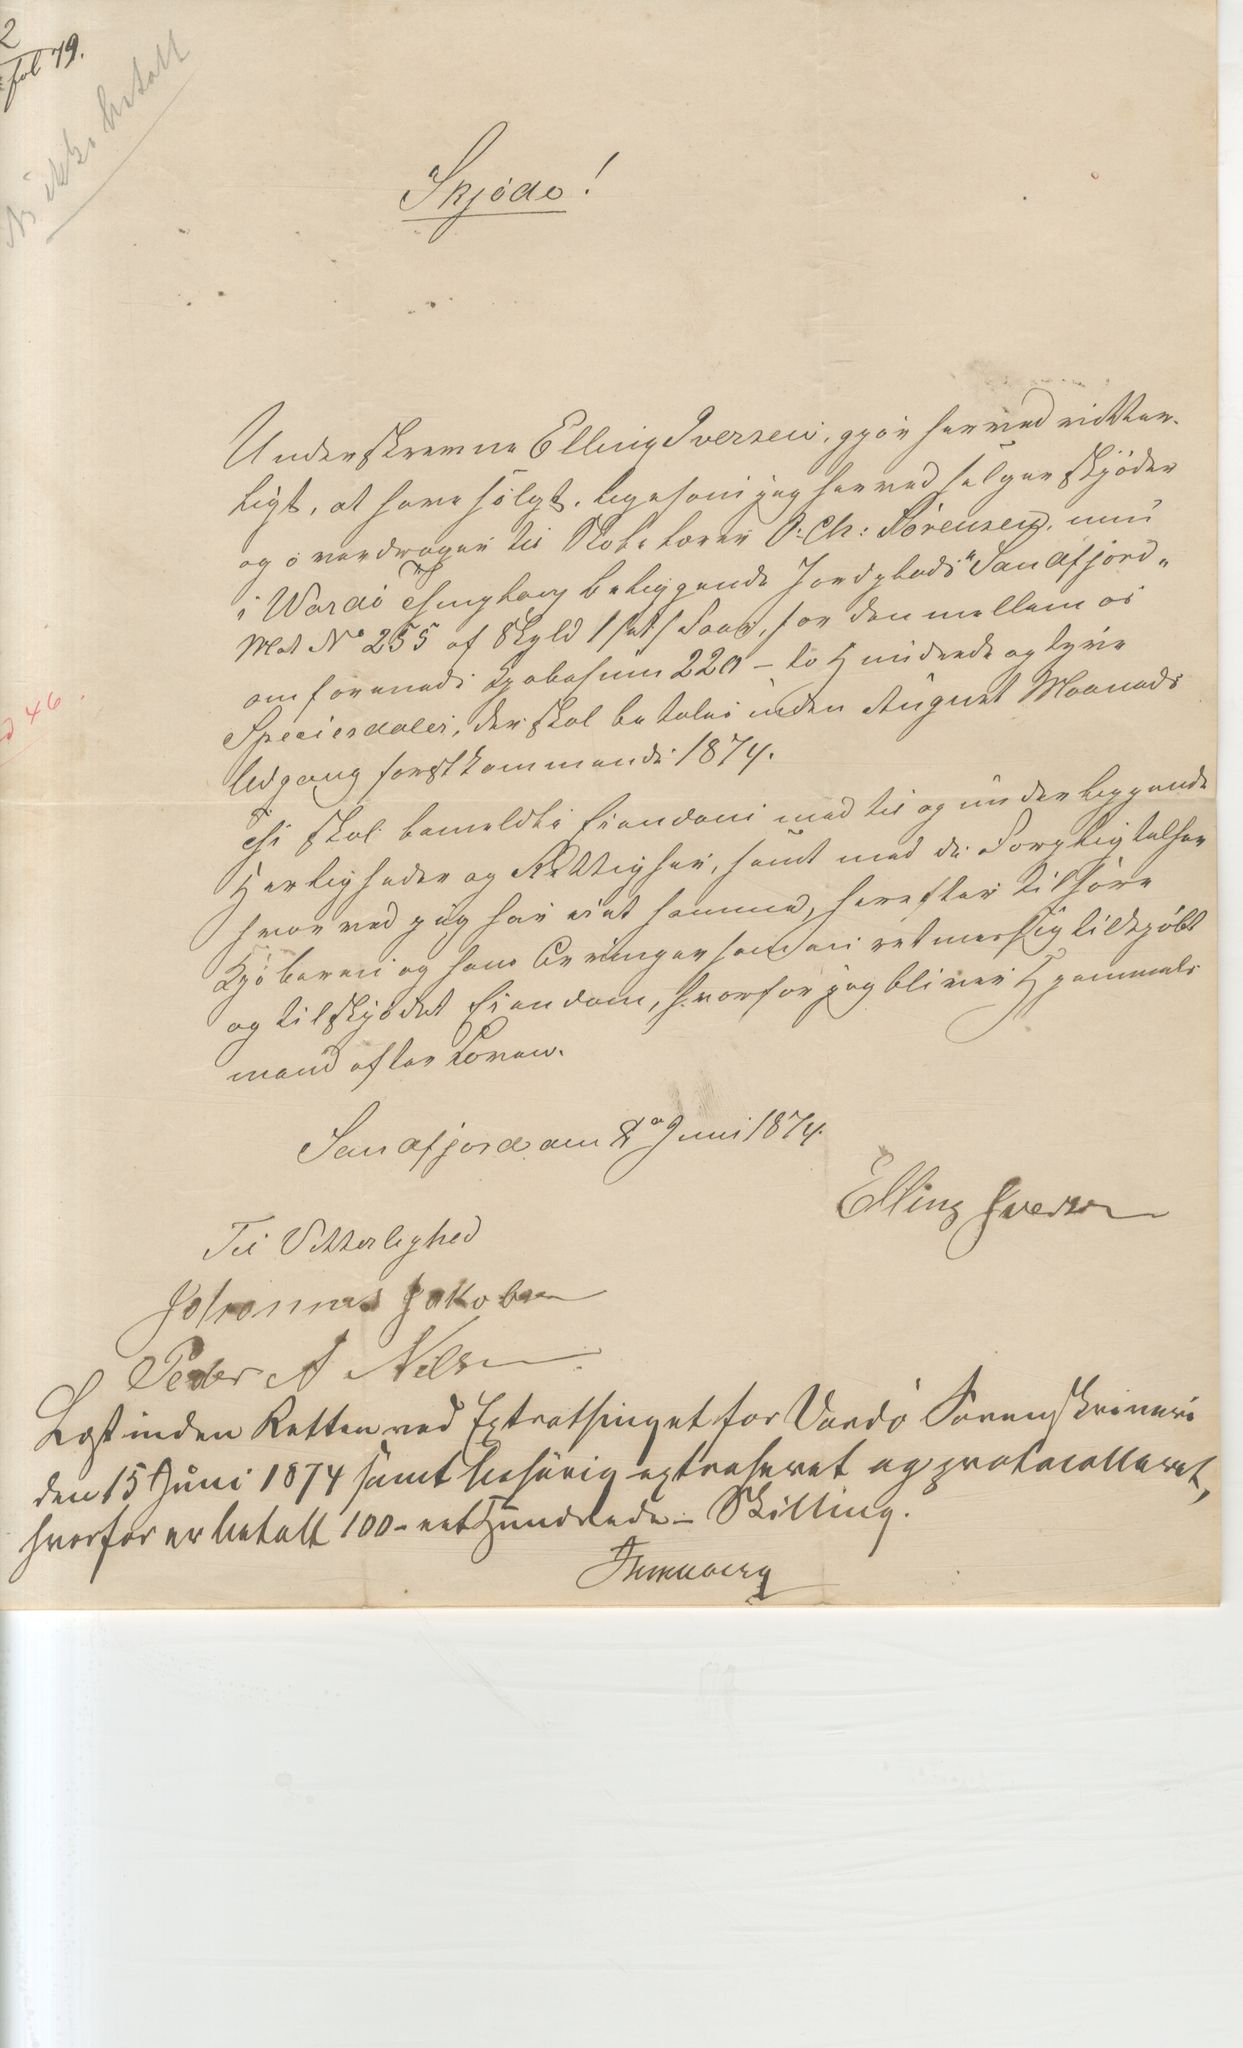 2
fol 79.
ikke betalt
d 46.
Skjøde!
Underskrevne Elling Iversen, gjør herved vitter-
ligt, at have sólgt, ligesom jeg herved selger skjøder
og overdrager til O: Ch: Sörensen, min
i Wardö Thinglaug beliggende Jordplads "Sandfjord"
Mat No 255 af Skyld 1 for den mellem os
omforenede Kjøbesum 220 - to Hundrede og tyve
Speciesdaler, der skal betales inden August Maaneds
Udgang førstkommende 1874.
Thi skal bemeldte Eiendom med til og underliggende
Herligheder og Rettigheder, samt med de Forpligtelser
hvorved jeg har eiet samme, herefter tilhøre
Kjøberen og hans Arvinger som en retmessig tilkjøbt
og tilskjødet Eiendom, hvorfor jeg bliver Hjemmels
mand efter Loven.
Sandfjord den Juni 1874.
Elling Iversen
Til Vitterlighed
Johannes Jakobsen
Peder A Nelsen
Læst inden Retten ved Extrathinget for Vardö Sorenskriveri
den 15 Juni 1874 samt behörig extraheret og protocolleret,
hvorfor er betalt 100 - eet Hundrede - Skilling.